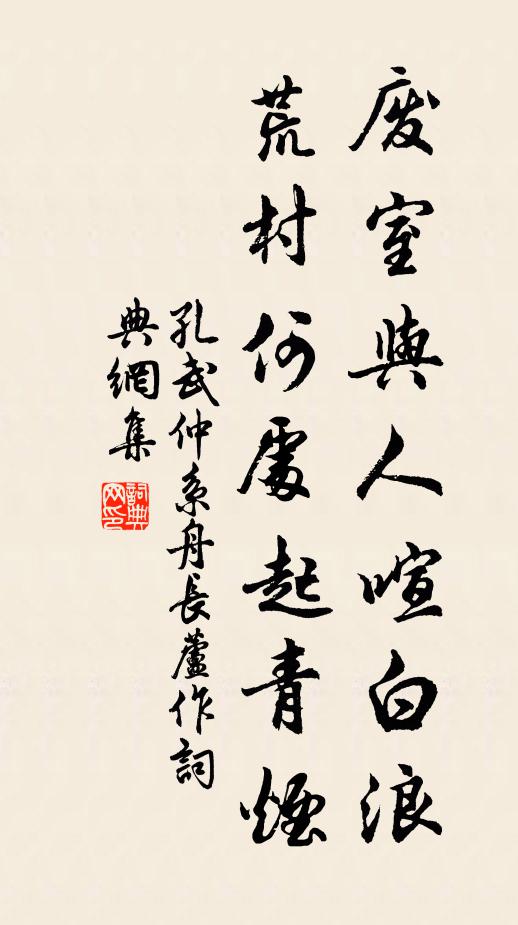 废室與人喧白浪
荒村何處起青煙
孔武仲系舟長蘆作詞
典網集
詞典
网印